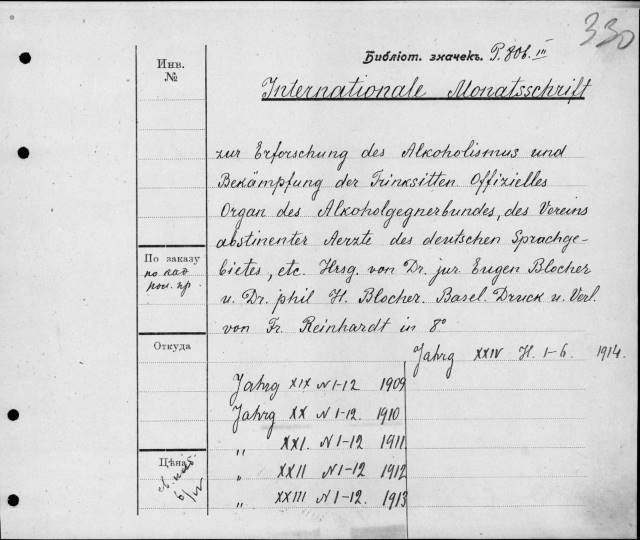 330
Библіот. значекъ. P. 806. III
Инв.
№
Internationale Monatsschrift
zur Erforschung des Alkoholismus und
Bekämpfung der Trinksitten Offizielles
Organ des Alkoholgegnerbundes, des Vereins
abstinenter Aerzte des deutschen Sprachge-
bietes, etc. Hrsg. von Dr. jur Eugen Blocher
u. Dr. phil H. Blocher. Basel. Druck u. Verl.
von Fr. Reinhardt in 8°
По заказу
Откуда
Jahrg XXIV H. 1-6. 1914.
Jahrg XIX N 1-12 1909
Jahrg XX N 1-12. 1910
„ XXI. N 1-12 1911
„ XXII N 1-12 1912
„ XXIII N 1-12. 1913
Цѣна